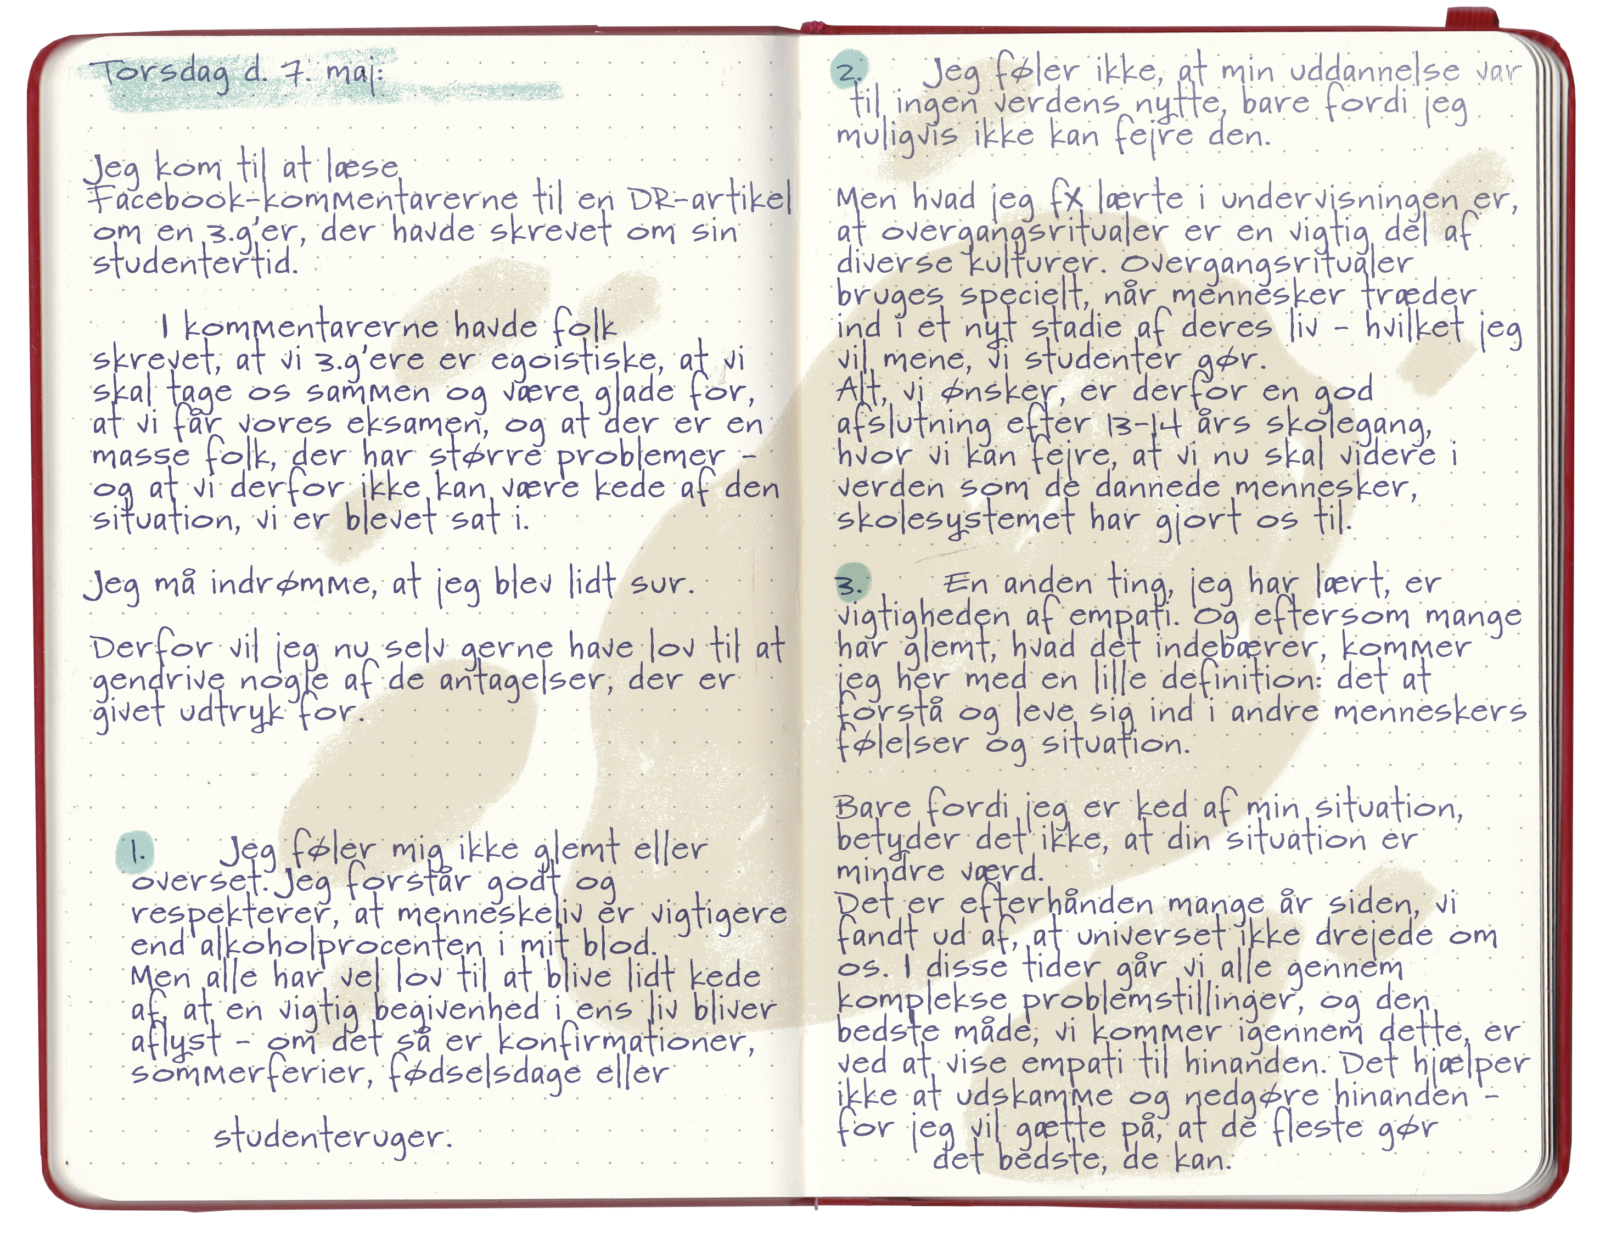 Torsdag d. 7. maj:
Jeg kom til at læse
Facebook-kommentarerne til en DR-artikel
om en 3.g'er, der havde skrevet om sin
studentertid.
I kommentarerne havde folk
skrevet, at vi 3.g'ere er egoistiske, at vi
skal tage os sammen og være glade for,
at vi får vores eksamen, og at der er en
masse folk, der har større problemer -
og at vi derfor ikke kan være kede af den
situation, vi er blevet sat i.
Jeg må indrømme, at jeg blev lidt sur.
Derfor vil jeg nu selv gerne have lov til at
gendrive nogle af de antagelser, der er
givet udtryk for.
1. Jeg føler mig ikke glemt eller
overset. Jeg forstår godt og
respekterer, at menneskeliv er vigtigere
end alkoholprocenten i mit blod.
Men alle har vel lov til at blive lidt kede
af, at en vigtig begivenhed i ens liv bliver
aflyst - om det så er konfirmationer,
sommerferier, fødselsdage eller
studenteruger.
2. Jeg føler ikke, at min uddannelse var
til ingen verdens nytte, bare fordi jeg
muligvis ikke kan fejre den.
Men hvad jeg fx lærte i undervisningen er,
at overgangsritualer er en vigtig del af
diverse kulturer. Overgangsritualer
bruges specielt, når mennesker træder
ind i et nyt stadie af deres liv - hvilket jeg
vil mene, vi studenter gør.
Alt, vi ønsker, er derfor en god
afslutning efter 13-14 års skolegang,
hvor vi kan fejre, at vi nu skal videre i
verden som de dannede mennesker,
skolesystemet har gjort os til.
3. En anden ting, jeg har lært, er
vigtigheden af empati. Og eftersom mange
har glemt, hvad det indebærer, kommer
jeg her med en lille definition: det at
forstå og leve sig ind i andre menneskers
følelser og situation.
Bare fordi jeg er ked af min situation,
betyder det ikke, at din situation er
mindre værd.
Det er efterhånden mange år siden, vi
fandt ud af, at universet ikke drejede om
os. I disse tider går vi alle gennem
komplekse problemstillinger, og den
bedste måde, vi kommer igennem dette, er
ved at vise empati til hinanden. Det hjælper
ikke at udskamme og nedgøre hinanden -
for jeg vil gætte på, at de fleste gør
det bedste, de kan.